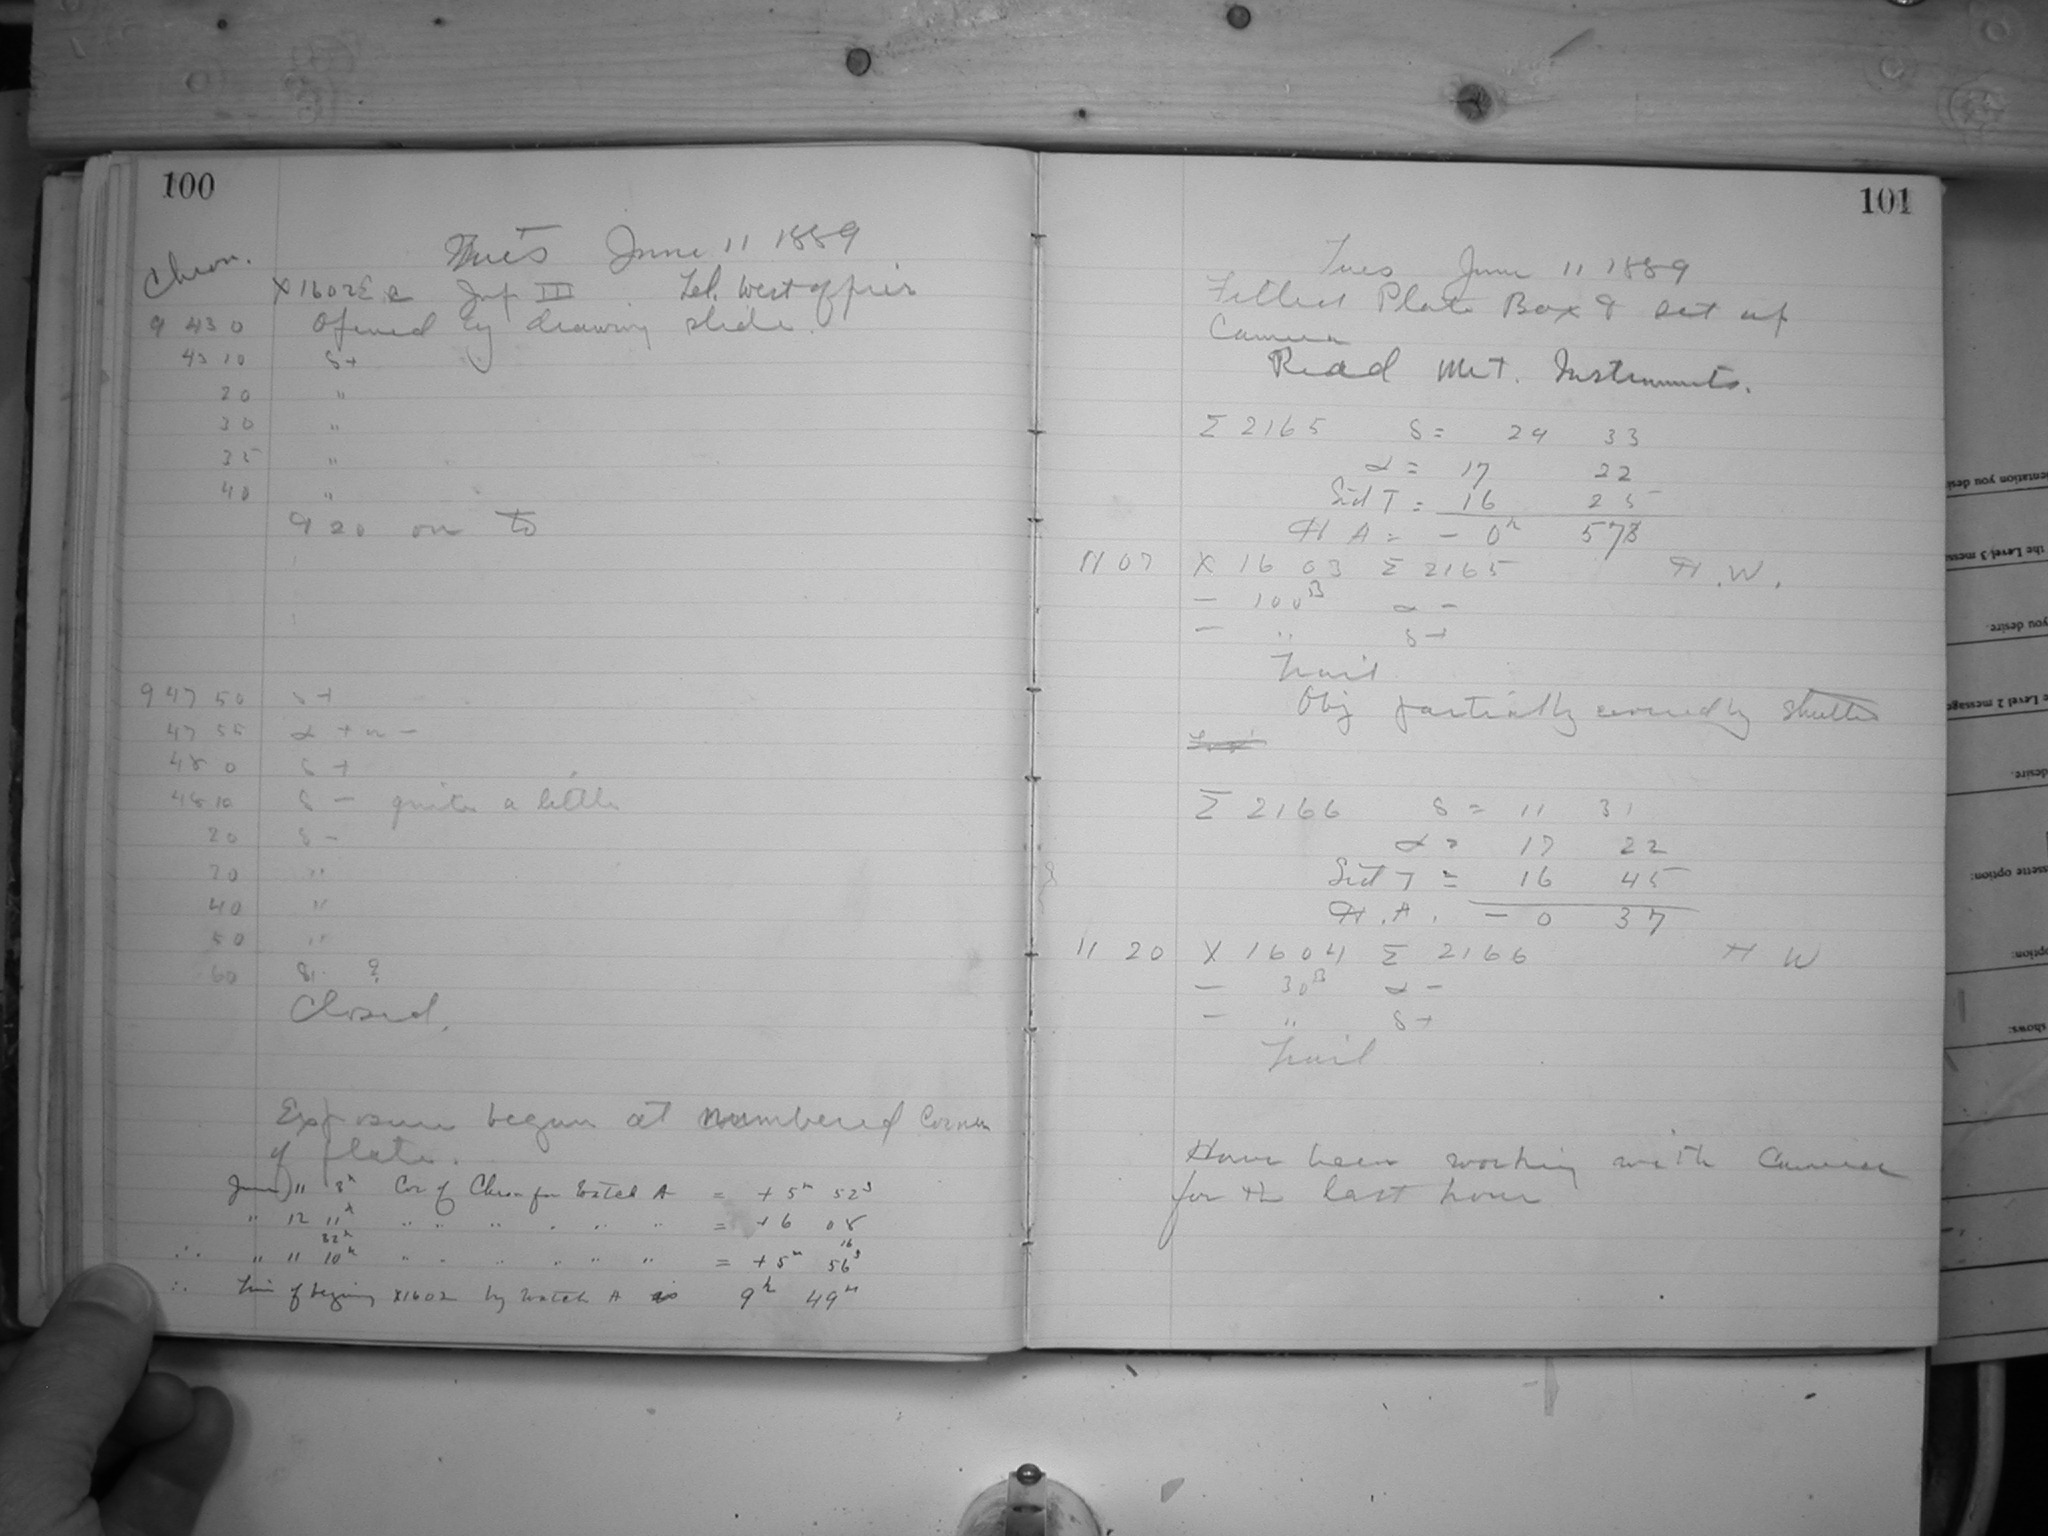 100
Tues June 11 1889
Chron.
X1602 Jup III. Tel. West of pier
9 43 0 Opened by drawing slide.
43 10 δ+
20 "
30 "
35 "
40 "
9 20 on to
9 47 50 δ+
47 55 α + or -
48 0 δ +
48 10 δ - quite a little
20 δ -
30 "
40 "
50 "
60 ?
Closed.
Exposure began at numbered corner
of plate.
June 11 8h Cor of Chron for Watch A = + 5m 52s
" 12 11h " " " " " " = + 6 08
22h 16
∴ " 11 10h " " " " " " = + 5m 56s
∴ Time of begining X1602 by Watch A is 9h 49m
101
Tues June 11 1889
Filled Plate Box & set up
Camera
Read Met. Instruments.
Σ 2165 δ = 24 33
α = 17 22
Sid T = 16 25
H A = - 0h 57
11 07 X 1603 Σ 2165 H.W.
- 100B α -
- " δ +
Trail
Obj partially covered by shutter
Σ 2166 δ = 11 31
α = 17 22
Sid T = 16 45
H.A. - 0 37
11 20 X 1604 Σ 2166 H W
- 30B α -
- " δ +
Trail
Have been working with Camera
for the last hour